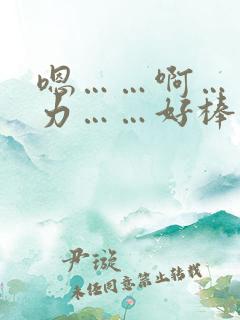 嗯……啊…
力……好棒
尹璇
未经同意禁止转载